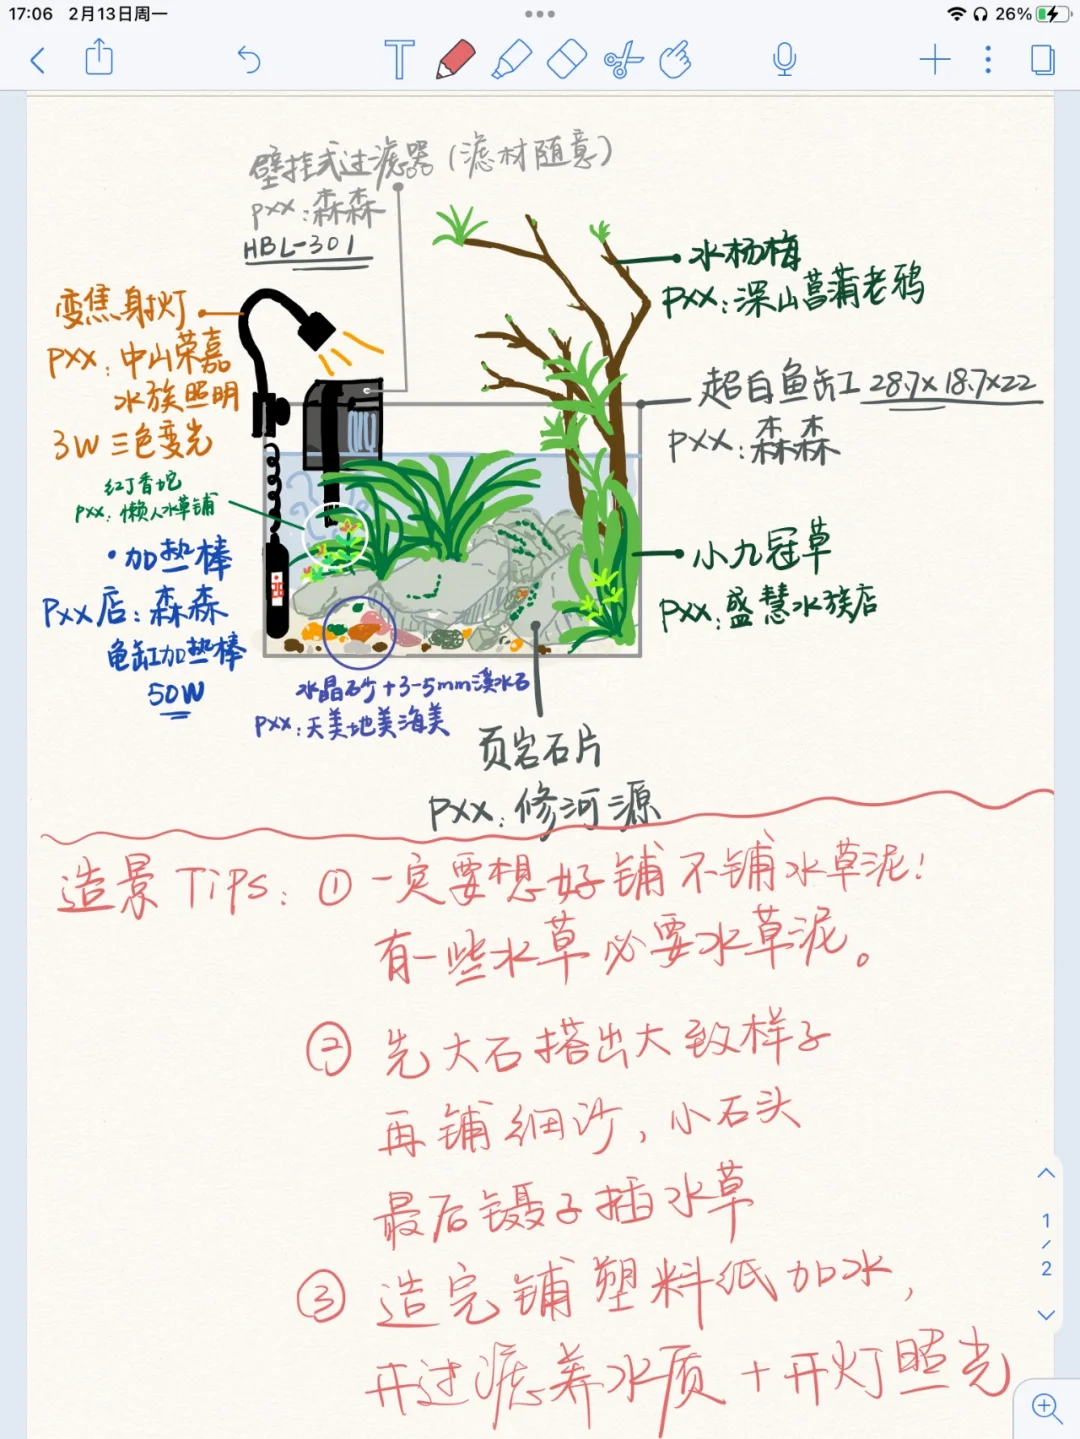 17:06 2月13日周一
26%
壁挂式过滤器(滤材随意)
pxx:森森
HBL-301
变焦射灯
pxx:中山荣嘉
水族照明
3W三色变光
水杨梅
pxx:深山菖蒲老鸦
超白鱼缸 28.7×18.7×22
pxx:森森
红丁香蛇
pxx:懒人水草铺
·加热棒
pxx店:森森
龟缸加热棒
50W
小九冠草
pxx:盛慧水族店
水晶砂+3-5mm溪水石
pxx:天美地美海美
页岩石片
pxx:修河源
造景Tips:①一定要想好铺不铺水草泥!
有一些水草必要水草泥。
②先大石搭出大致样子
再铺细沙,小石头
最后镊子插水草
③造完铺塑料纸加水,
开过滤养水质+开灯照光
1
/
2